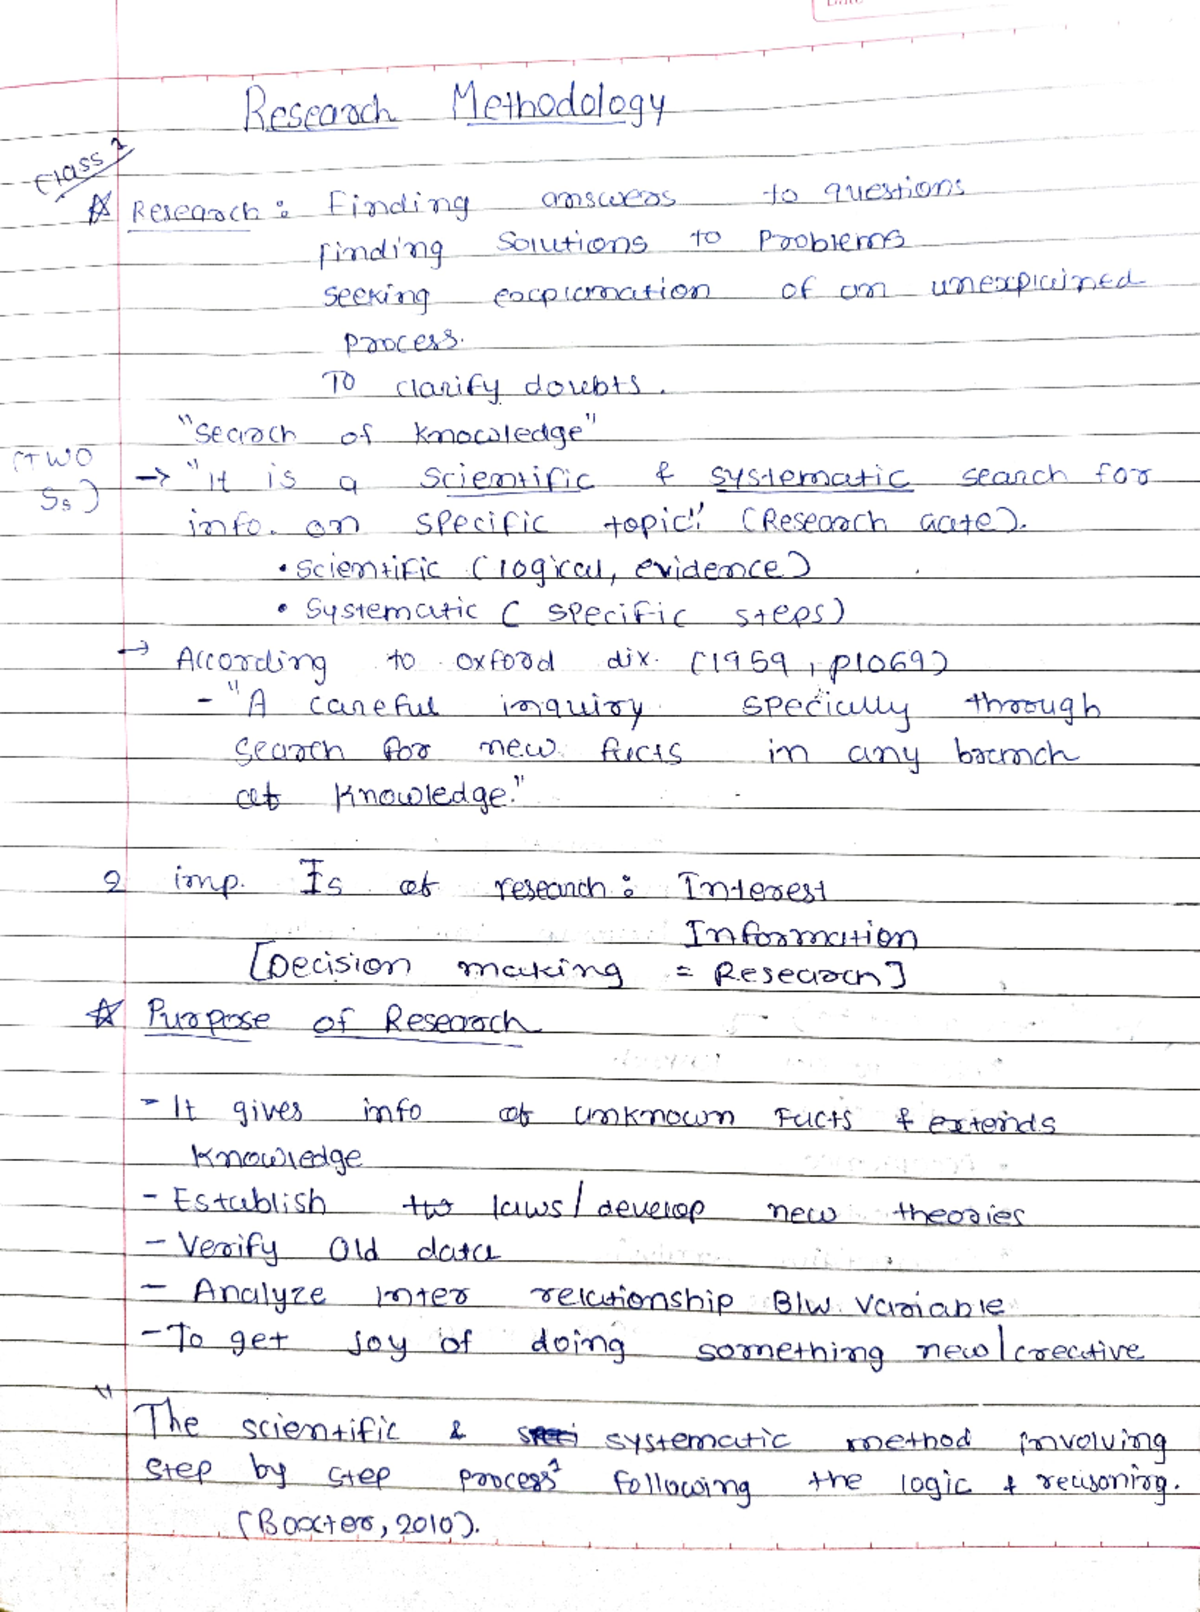 Research Methodology
Class 1
Research : Finding answers to questions
Finding solutions to Problems
seeking explanation of an unexplained
process.
To clarify doubts.
"search of knowledge"
(TWO
Ss)
→ "It is a scientific & systematic search for
info. on specific topic". (Research gate).
• scientific (logical, evidence)
• Systematic (specific steps)
→ According to oxford dix. (1959, p1069)
- "A careful inquiry specially through
search for new facts in any branch
of knowledge."
2 imp. Is of research : Interest
Information
[Decision making = Research]
Purpose of Research
- It gives info of unknown Facts & extends
knowledge
- Establish laws/develop new theories
- Verify Old data
- Analyze inter relationship B/w variable
- To get joy of doing something new/creative
" The scientific & systematic method involving
step by step process" following the logic & reasoning.
(Baxter, 2010).